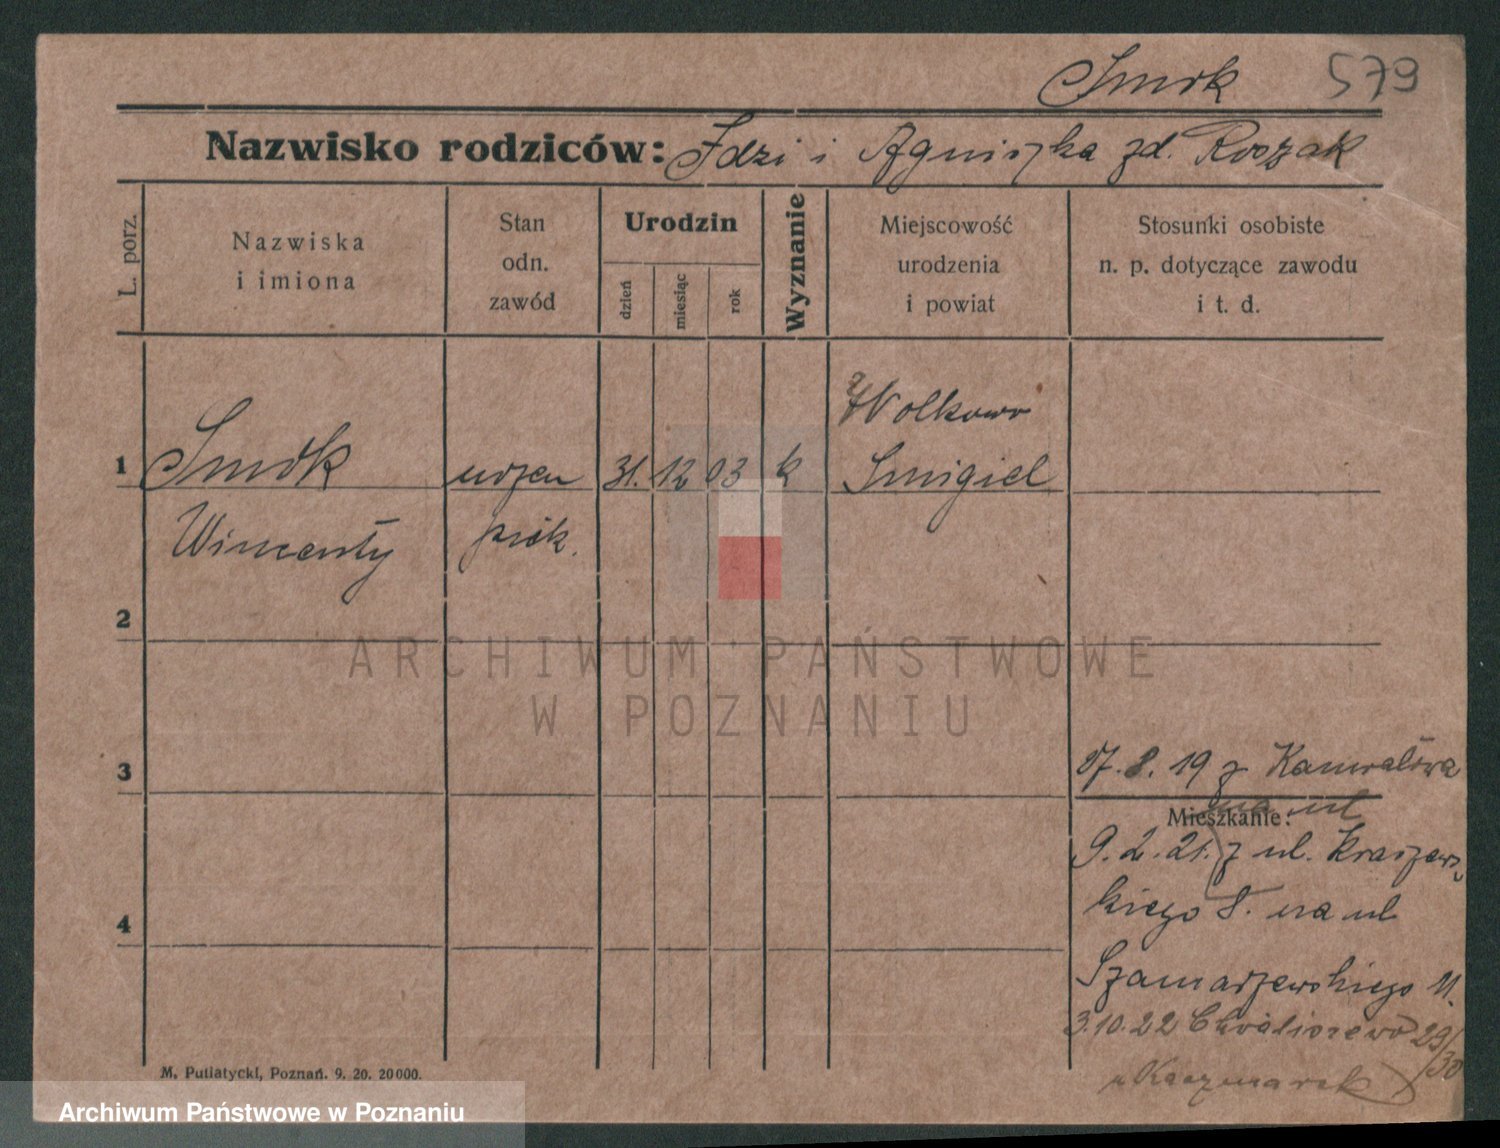 Smok 579
Nazwisko rodziców: Idzi i Agniszka zd. Roszak
L. porz.
Nazwiska
i imiona
Stan
odn.
zawód
Urodzin
dzień
miesiąc
rok
Wyznanie
Miejscowość
urodzenia
i powiat
Stosunki osobiste
n. p. dotyczące zawodu
i t. d.
Wolkowo
1 Smok uczen 31. 12 03 k Smigiel
Wincenty piek.
2
ARCHIWUM PAŃSTWOWE
W POZNANIU
3
17. 8. 19 z
na ul
Mieszkanie:
9. 2. 21. z ul. Kraszews
kiego 8. na ul
4
Szamarzewskiego 11.
3.10.22 29/30
u Kaczmarek
M. Putiatycki, Poznań. 9. 20. 20000.
Archiwum Państwowe w Poznaniu